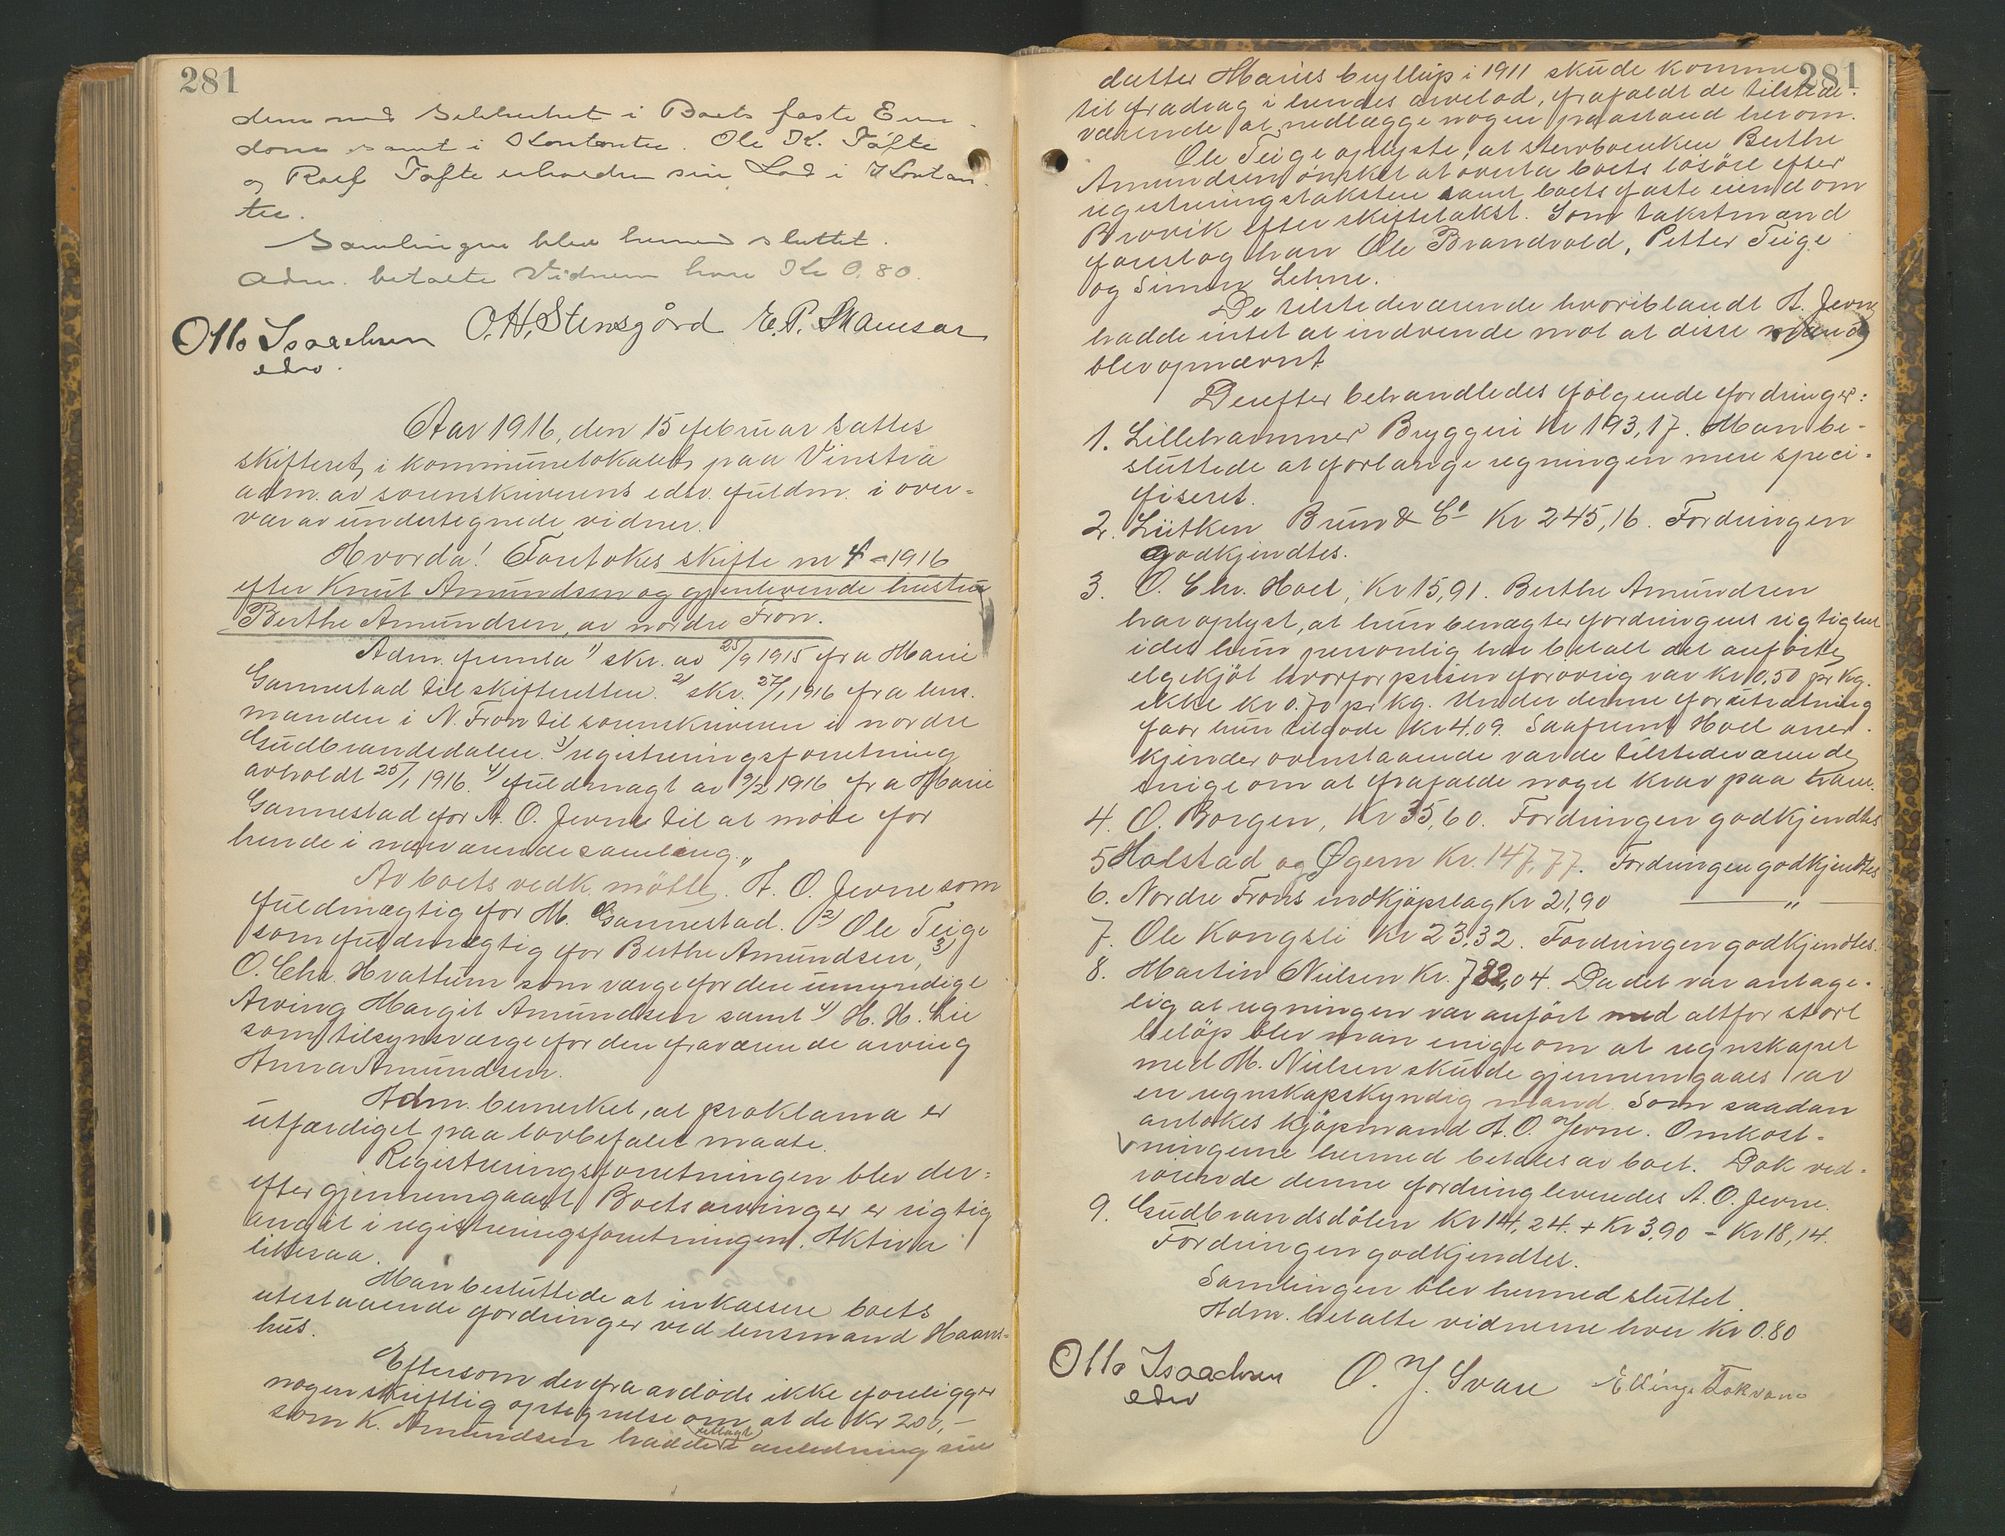 281
dem mod Sikkerhet i Boets faste Eien-
dom samt i Kontanter. Ole K. Tofte
og Rolf Tofte erholder sin Lod i Kontan-
ter.
Samlingen blev hermed sluttet.
Adm. betalte Vidnerne hver Kr 0.80.
Otto Isaachsen O.H. Stensgård E.P. Skamsar
edsv.
Aar 1916, den 15 februar sattes
skifteret i kommunelokalet paa Vinstra
adm. av sorenskriverens edsv. fuldm. i over-
vær av undertegnede vidner.
Hvorda! Foretokes skifte nr 4 - 1916
efter Knut Amundsen og gjenlevende hustru
Berthe Amundsen, av nordre Fron.
Adm. fremla 1) skr. av 25/9 1915 fra Marie
Gannestad til skifteretten. 2) skr. 27/1 1916 fra lens-
manden i N. Fron til sorenskriveren i nordre
Gudbrandsdalen. 3) registreringsforretning
avholdt 25/1 1916. 4) fuldmagt av 9/2 1916 fra Marie
Gannestad for A. O. Jevne til at møte for
hende i nærværende samling.
Av boets vedk. møtte. A. O. Jevne som
fuldmægtig for M. Gannestad. 2) Ole Teige
som fuldmægtig for Berthe Amundsen, 3)
O. Chr. Hvattum som værge for den umyndige
Arving Margit Amundsen samt 4) H. H. Lie
som tilsynsværge for den fraværende arving
Anna Amundsen.
Adm. bemerket, at proklama er
utfærdiget paa lovbefalet maate.
Registreringsforretningen blev der-
efter gjennemgaaet. Boets arvinger er rigtig
angit i registreringsforretningen. Aktiva
likesaa.
Man besluttede at inkassere boets
utestaaende fordringer ved lensmand Haavs-
hus.
Eftersom der fra avdøde ikke foreligger
nogen skriftlig optegnelse om at de Kr 200,-
som K. Amundsen hadde utlagt i anledning sin
281
datter Maries bryllup i 1911 skulde komme
til fradrag i hendes arvelod, frafaldt de tilstede-
værende at nedlægge nogen paastand herom.
Ole Teige oplyste, at stervboenken Berthe
Amundsen ønsket at overta boets løsøre efter
registreringstaksten samt boets faste eiendom
Brovik efter skiftetakst. Som takstmænd
foreslog han Ole Brandvold, Petter Teige
og Simen Lehne.
De tilstedeværende hvoriblandt A. Jevne
hadde intet at indvende mot at disse mænd
blev opnævnt.
Derefter behandledes følgende fordringer:
1. Lillehammer Bryggeri Kr 193,17. Man be-
sluttede at forlange regningen mere speci-
fiseret.
2. Lütken Brun & Co Kr 245,16. Fordringen
godkjendtes.
3. O. Chr. Hoel, Kr 15,91. Berthe Amundsen
har oplyst, at hun benægter fordringens rigtighet
idet hun personlig har betalt det anførte
elgekjøt hvorfor prisen forøvrig var kr 0,50 pr kg.
ikke kr 0.70 pr kg. Under denne forutsætning
faar hun tilgode Kr 4.09. Saafremt Hoel aner-
kjender ovenstaaende var de tilstedeværende
enige om at frafalde noget krav paa ham.
4. O. Borgen, Kr 35,60. Fordringen godkjendtes
5 Holstad og Øgern Kr. 147,77. Fordringen godkjendtes
6. Nordre Frons indkjøpslag Kr 21,90 — „ —
7. Ole Kongsli Kr 23.32. Fordringen godkjendtes.
8. Martin Nielsen Kr. 782,04. Da det var antage-
lig at regningen var anført med altfor stort
beløp blev man enige om at regnskapet
med M. Nielsen skulde gjennemgaaes av
en regnskapskyndig mand. Som saadan
antokes kjøpmand A. O. Jevne. Omkost-
ningerne hermed betales av boet. Dok. ved-
rørende denne fordring leveredes A. O. Jevne.
9. Gudbrandsdølen Kr 14,24. + Kr 3,90 = Kr 18,14.
Fordringen godkjendtes.
Samlingen blev hermed sluttet.
Adm. betalte vidnerne hver Kr 0.80
Otto Isaachsen O. J. Svare Elling Lokvam
edsv